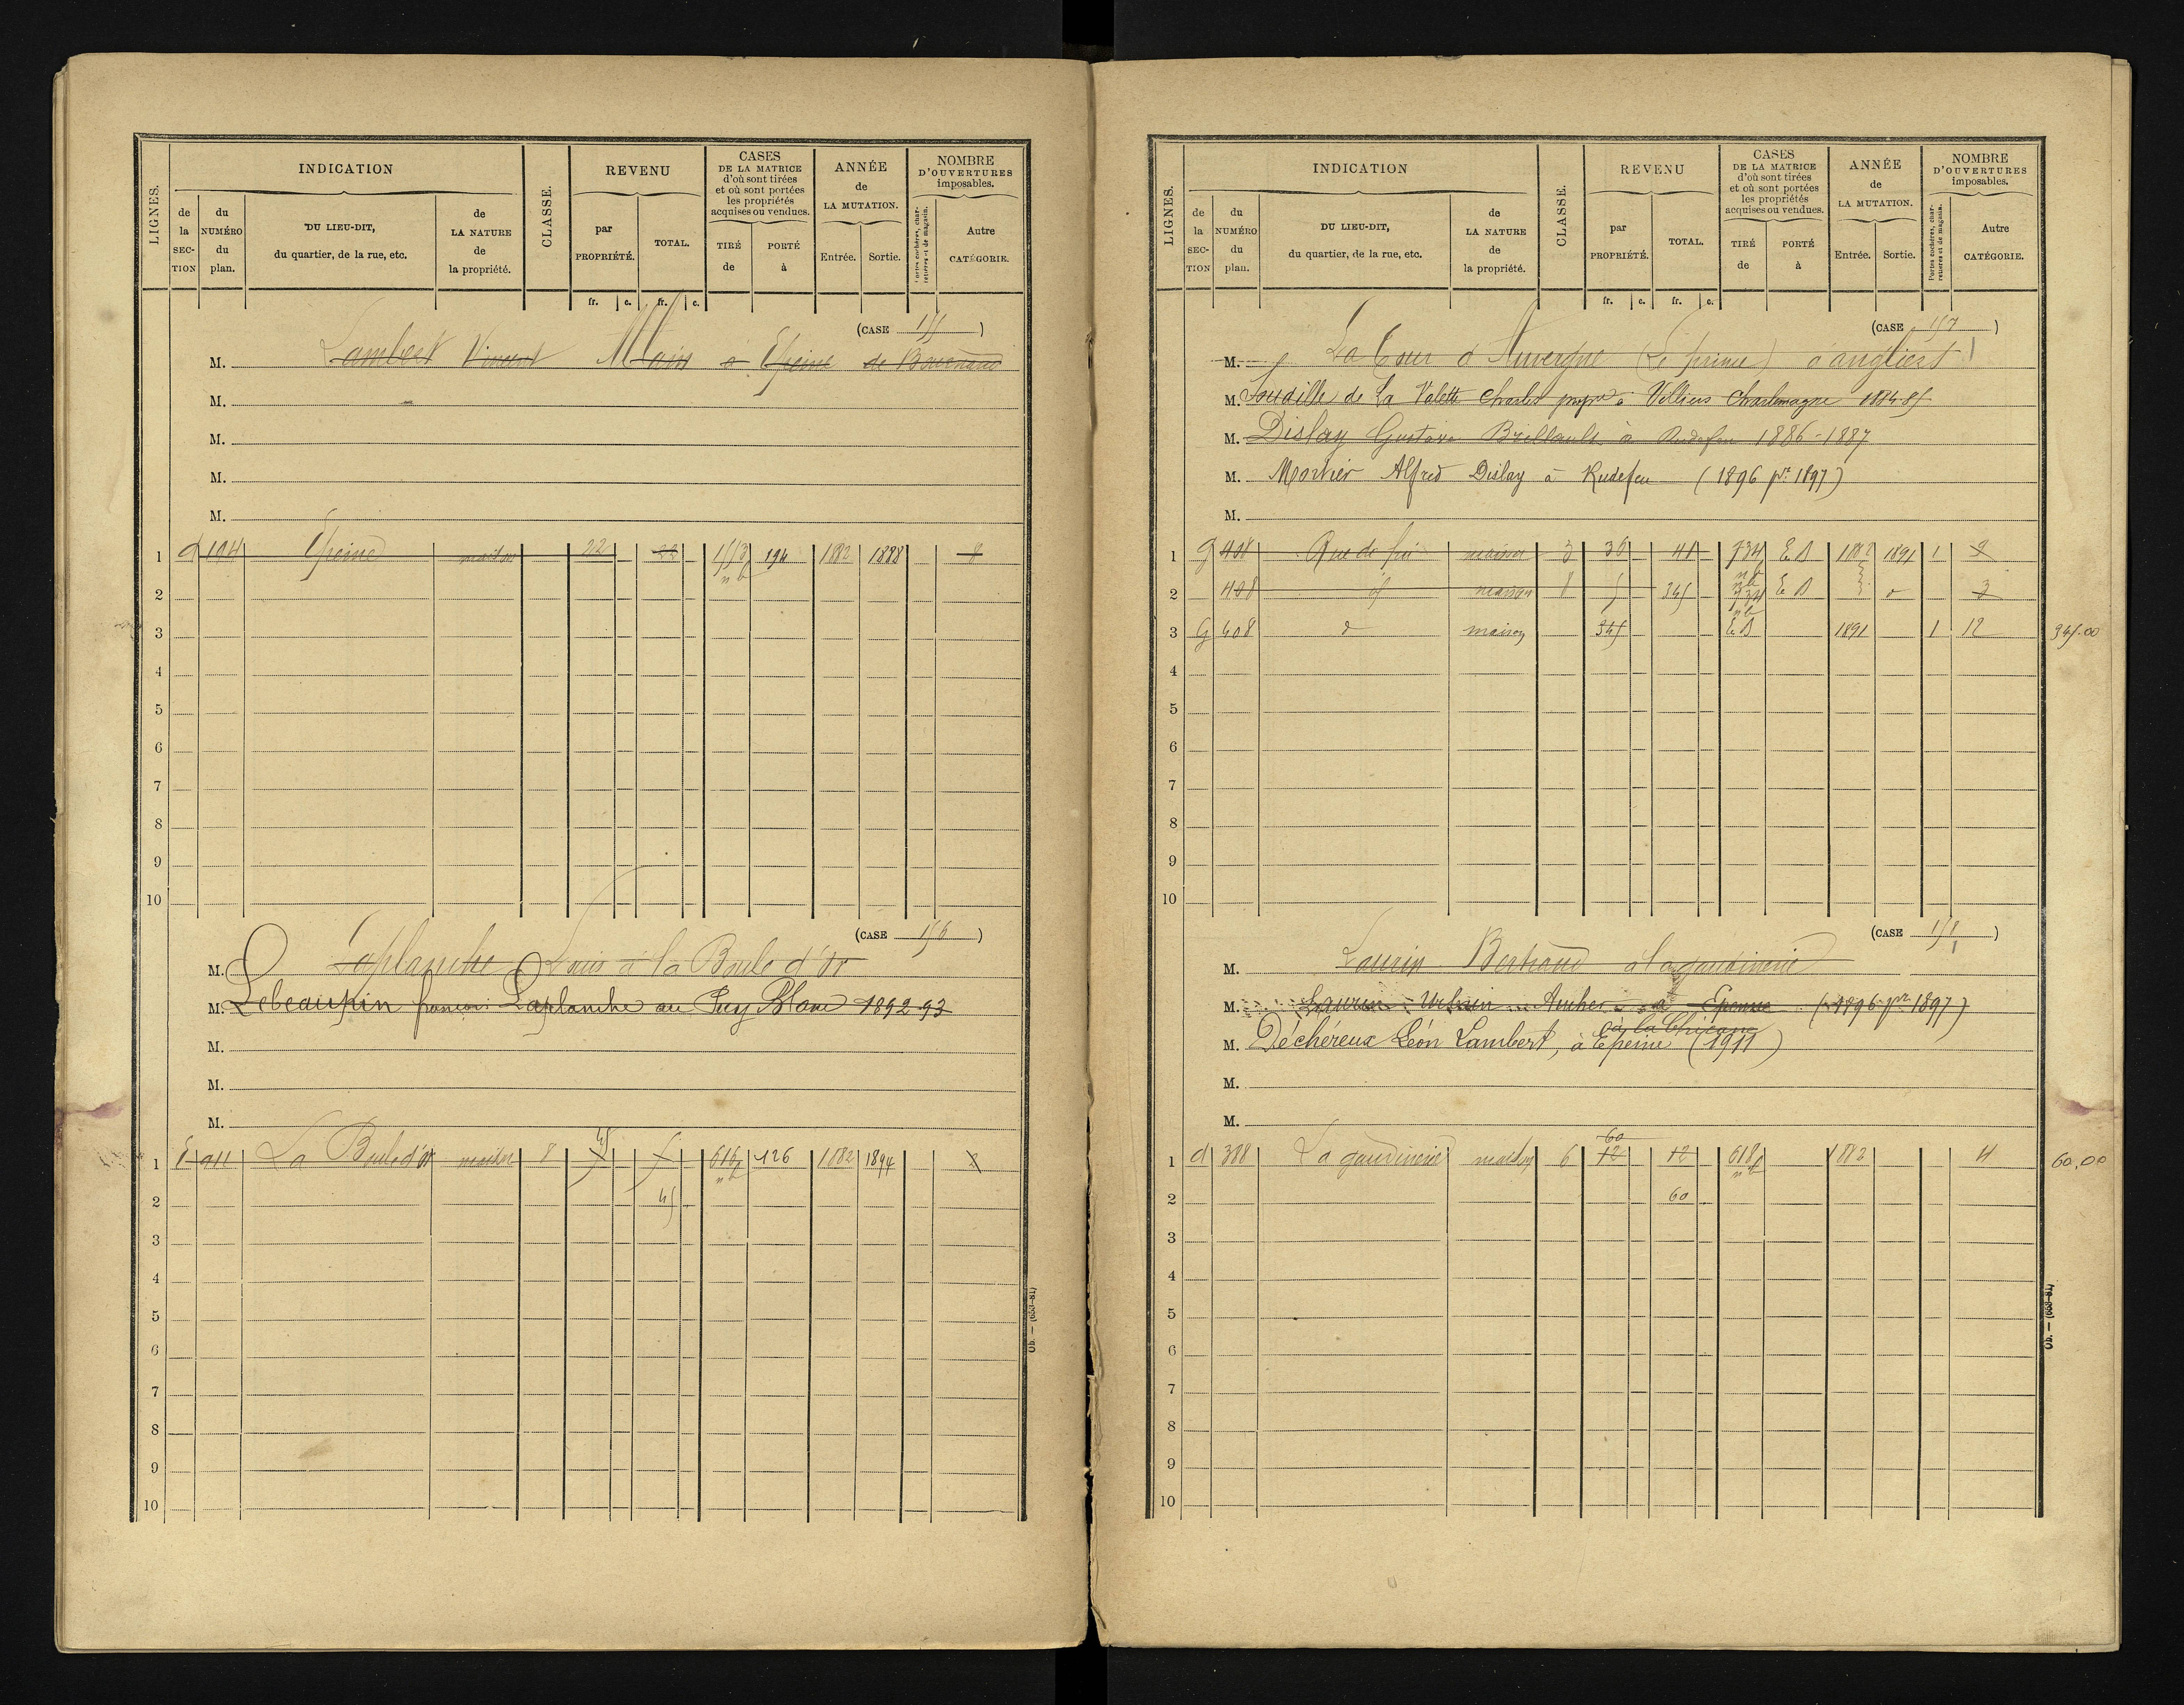 LIGNES.
INDICATION
de la SECTION
du NUMÉRO du plan.
DU LIEU-DIT, du quartier, de la rue, etc.
de LA NATURE de la propriété.
CLASSE.
REVENU
par PROPRIÉTÉ.
TOTAL.
CASES DE LA MATRICE d'où sont tirées et où sont portées les propriétés acquises ou vendues.
TIRÉ de
PORTÉ à
ANNÉE de LA MUTATION.
Entrée.
Sortie.
NOMBRE D'OUVERTURES imposables.
Portes cochères, charretières et de magasin.
Autre CATÉGORIE.
fr. c. fr. c.
(CASE 155)
M. Lambert Vincent à Epeine
M.
M.
M.
M.
1 d 104 Epeine maison 22 22 194 1882 1888 8
2
3
4
5
6
7
8
9
10
(CASE 156)
M. Laplanche Louis à la Boule d'or
M. Lebeaupin françois Laplanche au Puy Blanc 1892-93
M.
M.
M.
1 E 911 La Boule d'or maison 8 5 616 126 1882 1894 2
45
2
3
4
5
6
7
8
9
10
Ob. — (663-81)
LIGNES.
INDICATION
de la SECTION
du NUMÉRO du plan.
DU LIEU-DIT, du quartier, de la rue, etc.
de LA NATURE de la propriété.
CLASSE.
REVENU
par PROPRIÉTÉ.
TOTAL.
CASES DE LA MATRICE d'où sont tirées et où sont portées les propriétés acquises ou vendues.
TIRÉ de
PORTÉ à
ANNÉE de LA MUTATION.
Entrée.
Sortie.
NOMBRE D'OUVERTURES imposables.
Portes cochères, charretières et de magasin.
Autre CATÉGORIE.
fr. c. fr. c.
(CASE 157)
M. La Tour d'Auvergne (Le prince) à angliers
M. de La Valette Charles à Villiers Charlemagne 1884-85
M. Dislay Gustave Brillault à Rudefeu 1886-1887
M. Mortier Alfred Dislay à Rudefeu (1896 pr 1897)
M.
1 G 408 maison 3 36 41 734 E.B 1882 1891 1
2 408 id maison 8 5 345 734 E B 3
3 G 408 d maison 345 E.B 1891 1 12 345.00
4
5
6
7
8
9
10
(CASE 158)
M. Laurin Bertrand à la gaudinerie
M. Laurin Urbain Aucher à Epenne (1896 pr 1897)
à la Chicane
M. Déchéreux Léon Lambert, à Epeine (1911)
M.
M.
60
1 d 388 La gaudinerie maison 6 12 12 618 1882 4 60.00
2 60
3
4
5
6
7
8
9
10
Ob. — (663-81)